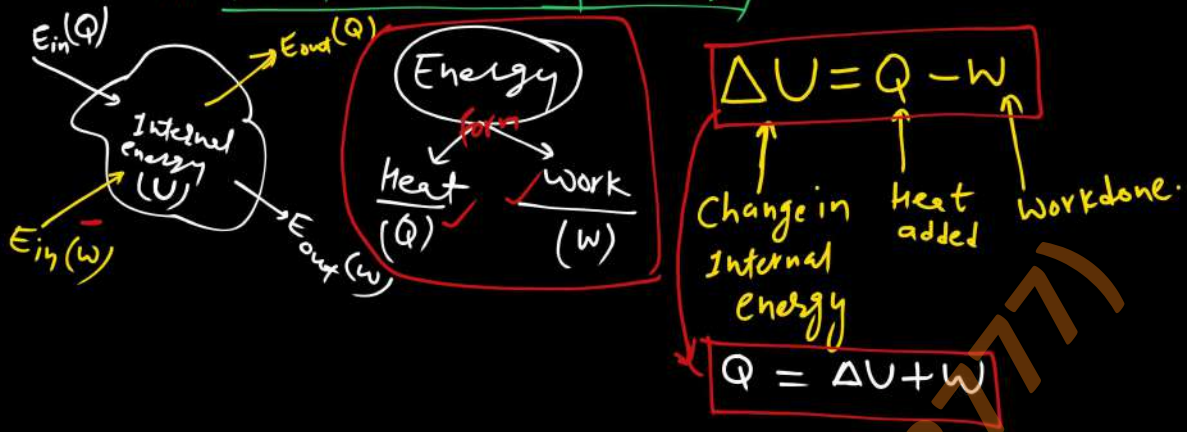 Ein(Q)
Eout(Q)
Internal
energy
(U)
Ein(W)
Eout(W)
Energy
form
Heat
(Q)
Work
(W)
ΔU = Q - W
Change in
Internal
energy
Heat
added
Workdone.
Q = ΔU + W
777)